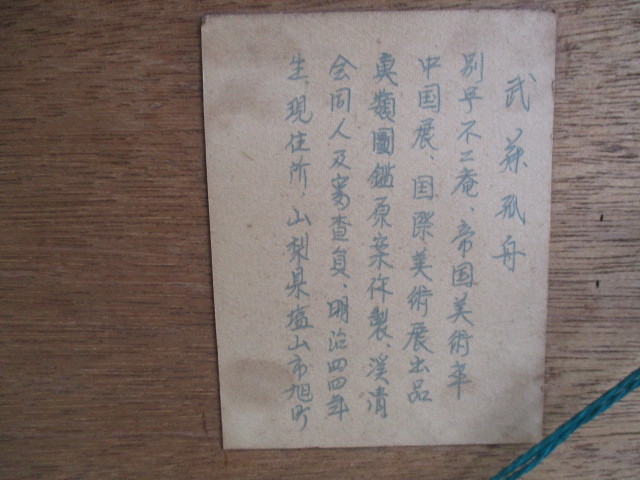 武藤孤舟
別号不二庵、帝国美術卒
中国展、国際美術展出品
貝類圖鑑原案作製、渓清
会同人及審査員、明治四四年
生、現住所、山梨県塩山市旭町